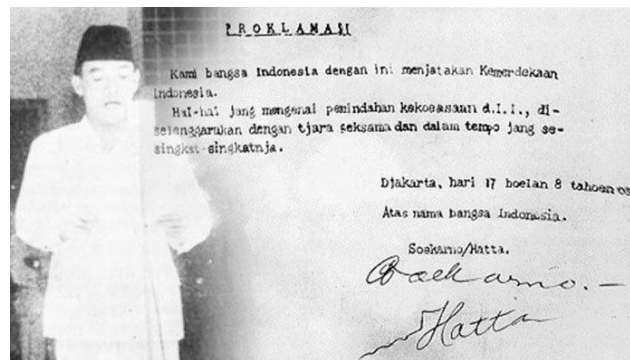 PROKLAMASI
Kami bangsa Indonesia dengan ini menjatakan Kemerdekaan
Indonesia.
Hal-hal jang mengenai pemindahan kekoeasaan d.l.l., di-
selenggarakan dengan tjara seksama dan dalam tempo jang se-
singkat-singkatnja.
Djakarta, hari 17 boelan 8 tahoen 05
Atas nama bangsa Indonesia.
Soekarno/Hatta.
Soekarno.-
Hatta